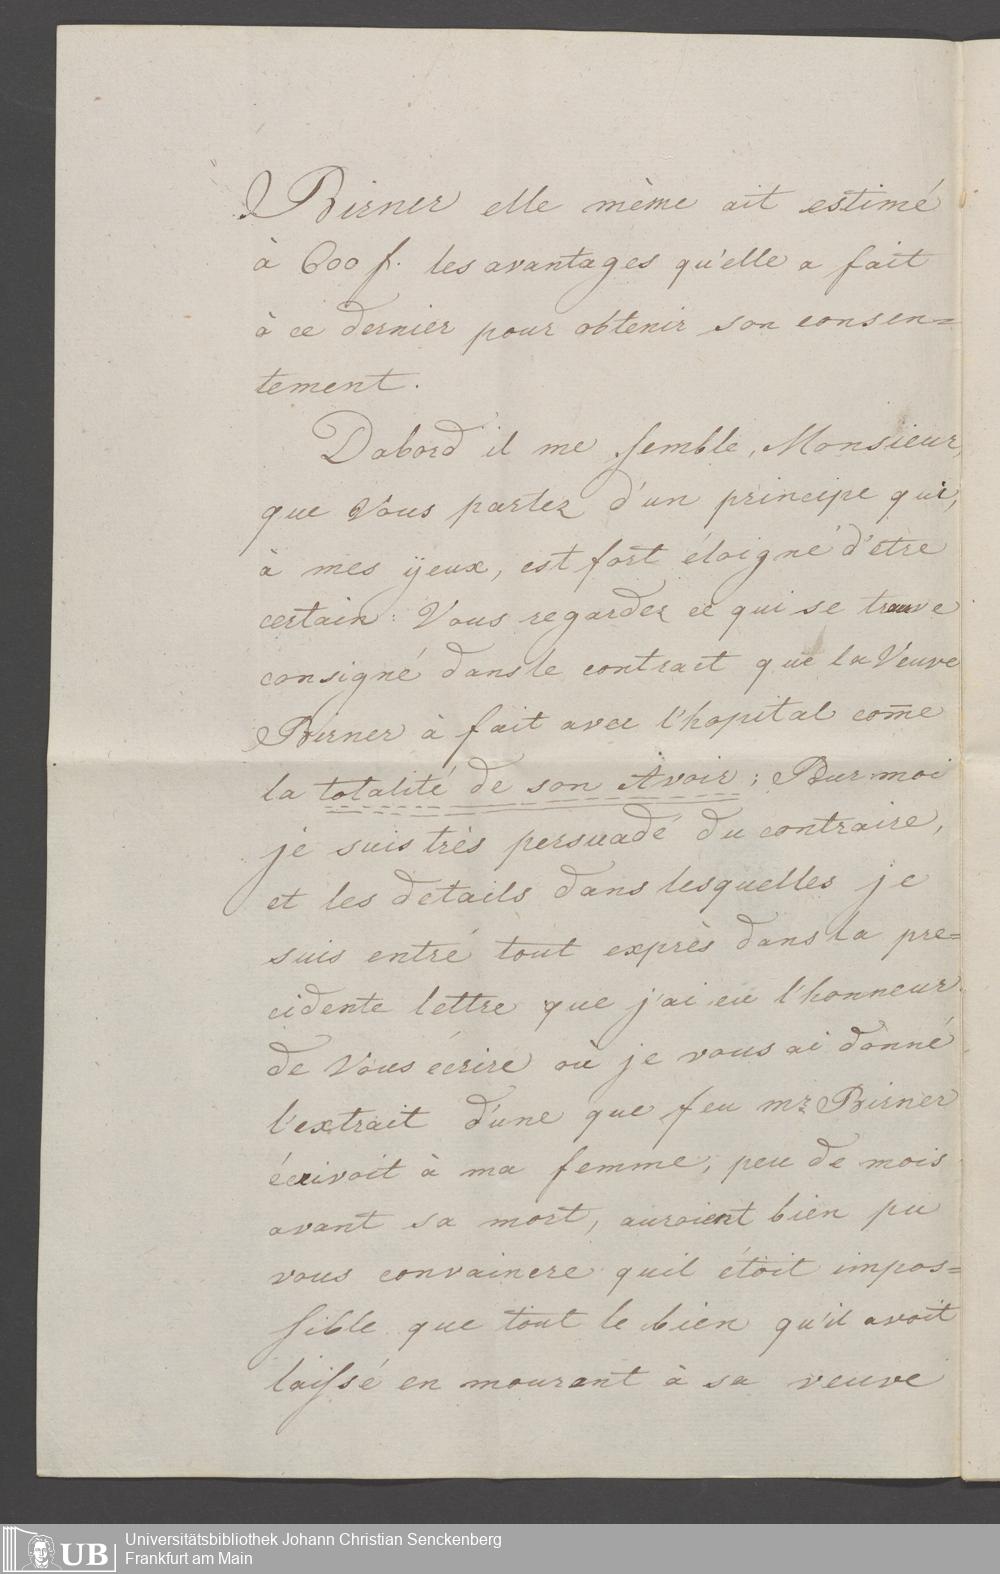 Birner elle même ait estimé
à 600 f. les avantages qu'elle a fait
à ce dernier pour obtenir son consen=
tement.
Dabord il me semble, Monsieur,
que Vous partez d'un principe qui,
à mes ÿeux, est fort éloigné d'etre
certain: Vous regardez ce qui se trouve
consigné dans le contract que la Veuve
Birner à fait avec l'hopital com̄e
la totalité de son Avoir; Pour moi
je suis très persuadé du contraire,
et les details dans lesquelles je
suis entré tout exprès dans la pre=
cidente lettre que j'ai eu l'honneur
de Vous écrire où je vous ai donné
l'extrait d'une que feu mr Birner
écrivoit à ma femme, peu de mois
avant sa mort, auroient bien pu
vous convaincre quil étoit impos=
sible que tout le bien qu'il avoit
laissé en mourant à sa veuve
UB
Universitätsbibliothek Johann Christian Senckenberg
Frankfurt am Main